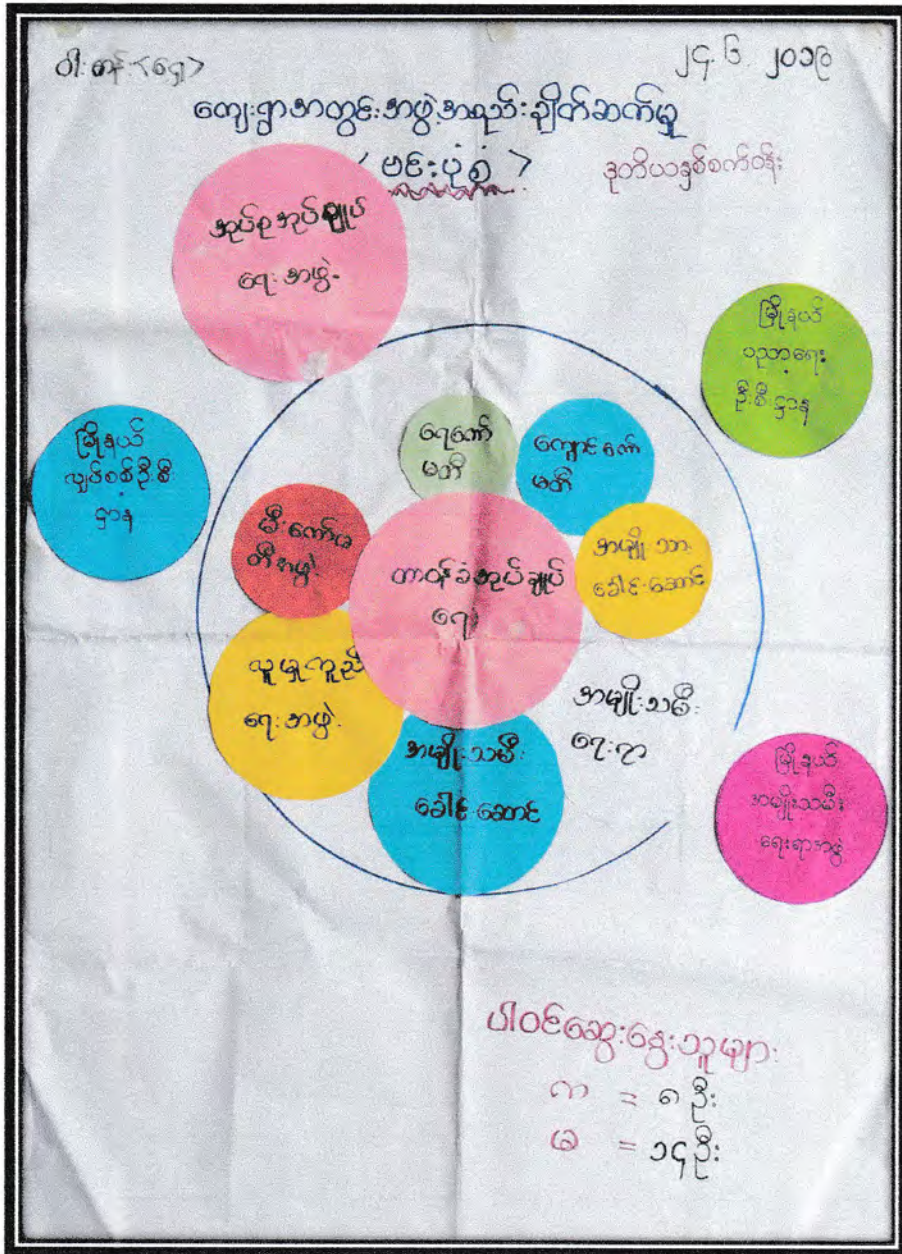 ဝါးတန်း<ရှေ့>
၂၄.၆.၂၀၁၉
ကျေးရွာအတွင်းအဖွဲ့အစည်းချိတ်ဆက်မှု
< ဗင်းပုံစံ >
ဒုတိယနှစ်စက်ဝန်း
အုပ်စုအုပ်ချုပ်
ရေးအဖွဲ့
မြို့နယ်
ပညာရေး
ဦးစီးဌာန
မြို့နယ်
လျှပ်စစ်ဦးစီး
ဌာန
ရေကော်
မတီ
ကျောင်းကော်
မတီ
မီးကော်မ
တီအဖွဲ့
အမျိုးသား
ခေါင်းဆောင်
တာဝန်ခံအုပ်ချုပ်
ရေး
လူမှုကူညီ
ရေးအဖွဲ့
အမျိုးသမီး
ရေးရာ
အမျိုးသမီး
ခေါင်းဆောင်
မြို့နယ်
အမျိုးသမီး
ရေးရာအဖွဲ့
ပါဝင်ဆွေးနွေးသူများ
ကျား = ၈ ဦး
မ = ၁၄ဦး